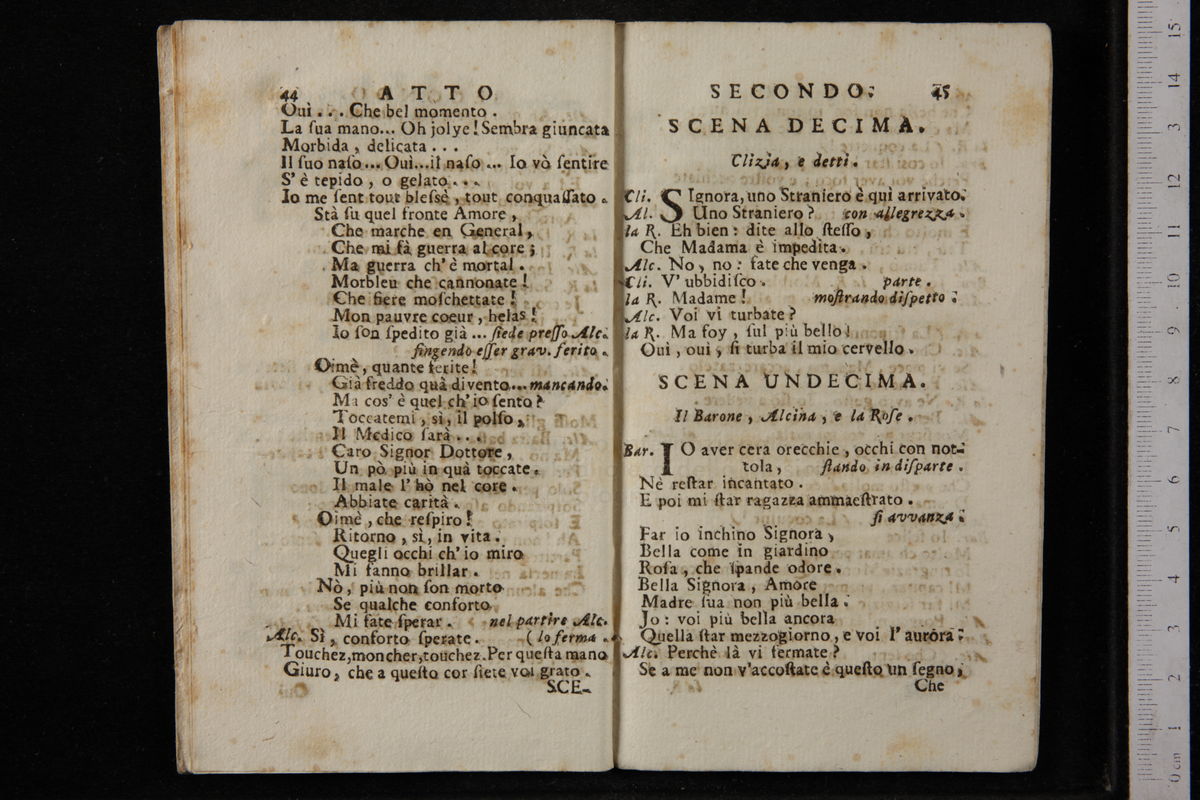 44 ATTO
Ouì . . . Che bel momento .
La ſua mano... Oh jolye! Sembra giuncata
Morbida , delicata . . .
Il ſuo naſo... Ouì...il naſo ... Io vò ſentire
S' è tepido , o gelato . . .
Io me ſent tout bleſsè , tout conquaſſato .
Stà ſu quel fronte Amore ,
Che marche en General ,
Che mi fà guerra al core ;
Ma guerra ch' è mortal .
Morbleu che cannonate !
Che fiere moſchettate !
Mon pauvre coeur , helas !
Io ſon ſpedito già ... ſiede preſſo Alc.
fingendo eſſer grav. ferito .
Oimè , quante ferite !
Già freddo quà divento... mancando.
Ma cos' è quel ch' io ſento ?
Toccatemi , sì , il polſo ,
Il Medico ſarà . . .
Caro Signor Dottore ,
Un pò più in quà toccate .
Il male l' hò nel core .
Abbiate carità .
Oimè , che reſpiro !
Ritorno , sì , in vita .
Quegli occhi ch' io miro
Mi fanno brillar .
Nò , più non ſon morto
Se qualche conforto
Mi fate ſperar . nel partire Alc.
Alc. Sì , conforto ſperate . ( lo ferma .
Touchez,mon cher,touchez.Per queſta mano
Giuro , che a queſto cor ſiete voi grato .
SCE-
SECONDO. 45
SCENA DECIMA.
Clizia , e detti .
Cli. SIgnora, uno Straniero è quì arrivato.
Al. Uno Straniero ? con allegrezza .
la R. Eh bien : dite allo ſteſſo ,
Che Madama è impedita .
Alc. No , no : fate che venga .
Cli. V' ubbidiſco . parte .
la R. Madame ! moſtrando diſpetto .
Alc. Voi vi turbate ?
la R. Ma foy , ſul più bello !
Oui , oui , ſi turba il mio cervello .
SCENA UNDECIMA.
Il Barone , Alcina , e la Roſe .
Bar. IO aver cera orecchie , occhi con not-
tola , ſtando in diſparte .
Nè reſtar incantato .
E poi mi ſtar ragazza ammaeſtrato .
ſi avvanza .
Far io inchino Signora ,
Bella come in giardino
Roſa , che ſpande odore .
Bella Signora , Amore
Madre ſua non più bella .
Jo : voi più bella ancora
Quella ſtar mezzogiorno , e voi l' aurora .
Alc. Perchè là vi fermate ?
Se a me non v'accoſtate è queſto un ſegno ,
Che